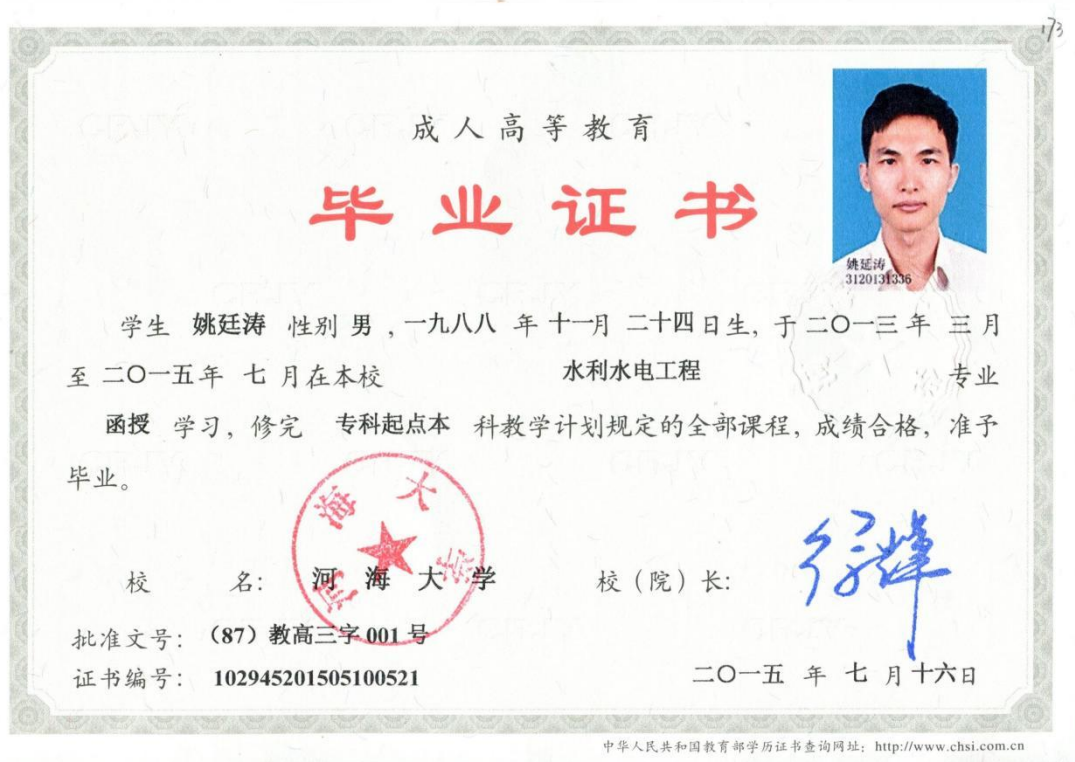 173
成人高等教育
毕业证书
姚延涛
3120131336
学生 姚廷涛 性别 男 ,一九八八 年 十一月 二十四日生, 于二〇一三年 三月
至 二〇一五年 七 月在本校 水利水电工程 专业
函授 学习, 修完 专科起点本 科教学计划规定的全部课程, 成绩合格, 准予
毕业。
河海大学
校 名: 河 海 大 学 校(院)长:
批准文号: (87)教高三字 001 号
证书编号: 102945201505100521 二〇一五 年 七 月 十六日
中华人民共和国教育部学历证书查询网址: http://www.chsi.com.cn